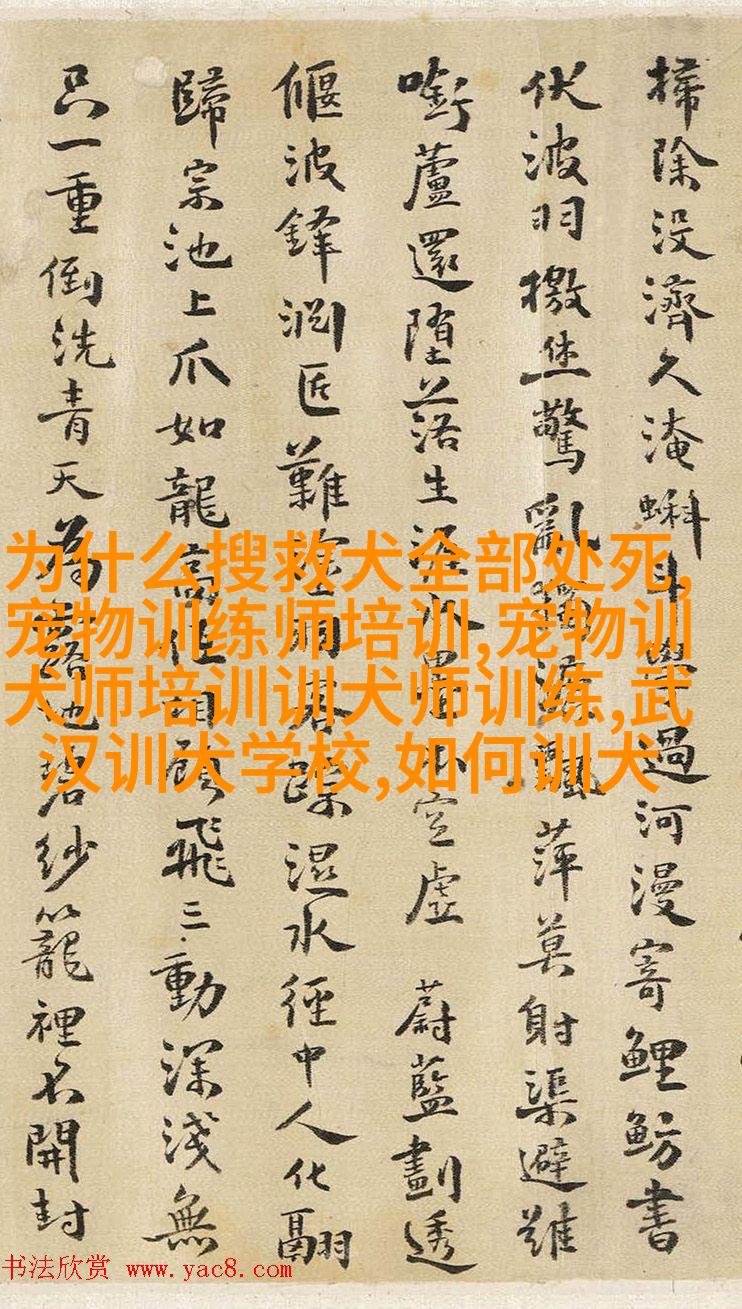 为什么搜救犬全部处死,
宠物训练师培训,宠物训
犬师培训训犬师训练,武
汉训犬学校,如何训犬
掃除没濟久淹蝌斗過河漫寄鯉魴書
伏波羽檄驚亂萍莫射渠避難
啣蘆還墮落生水空虛 蔚藍劃透
偃波鋒匠難水徑中人化翮
歸宗池上爪如龍飛三動深淺無
只一重倒洗青天為也碧紗籠裡不開封
书法欣赏 www.yac8.com